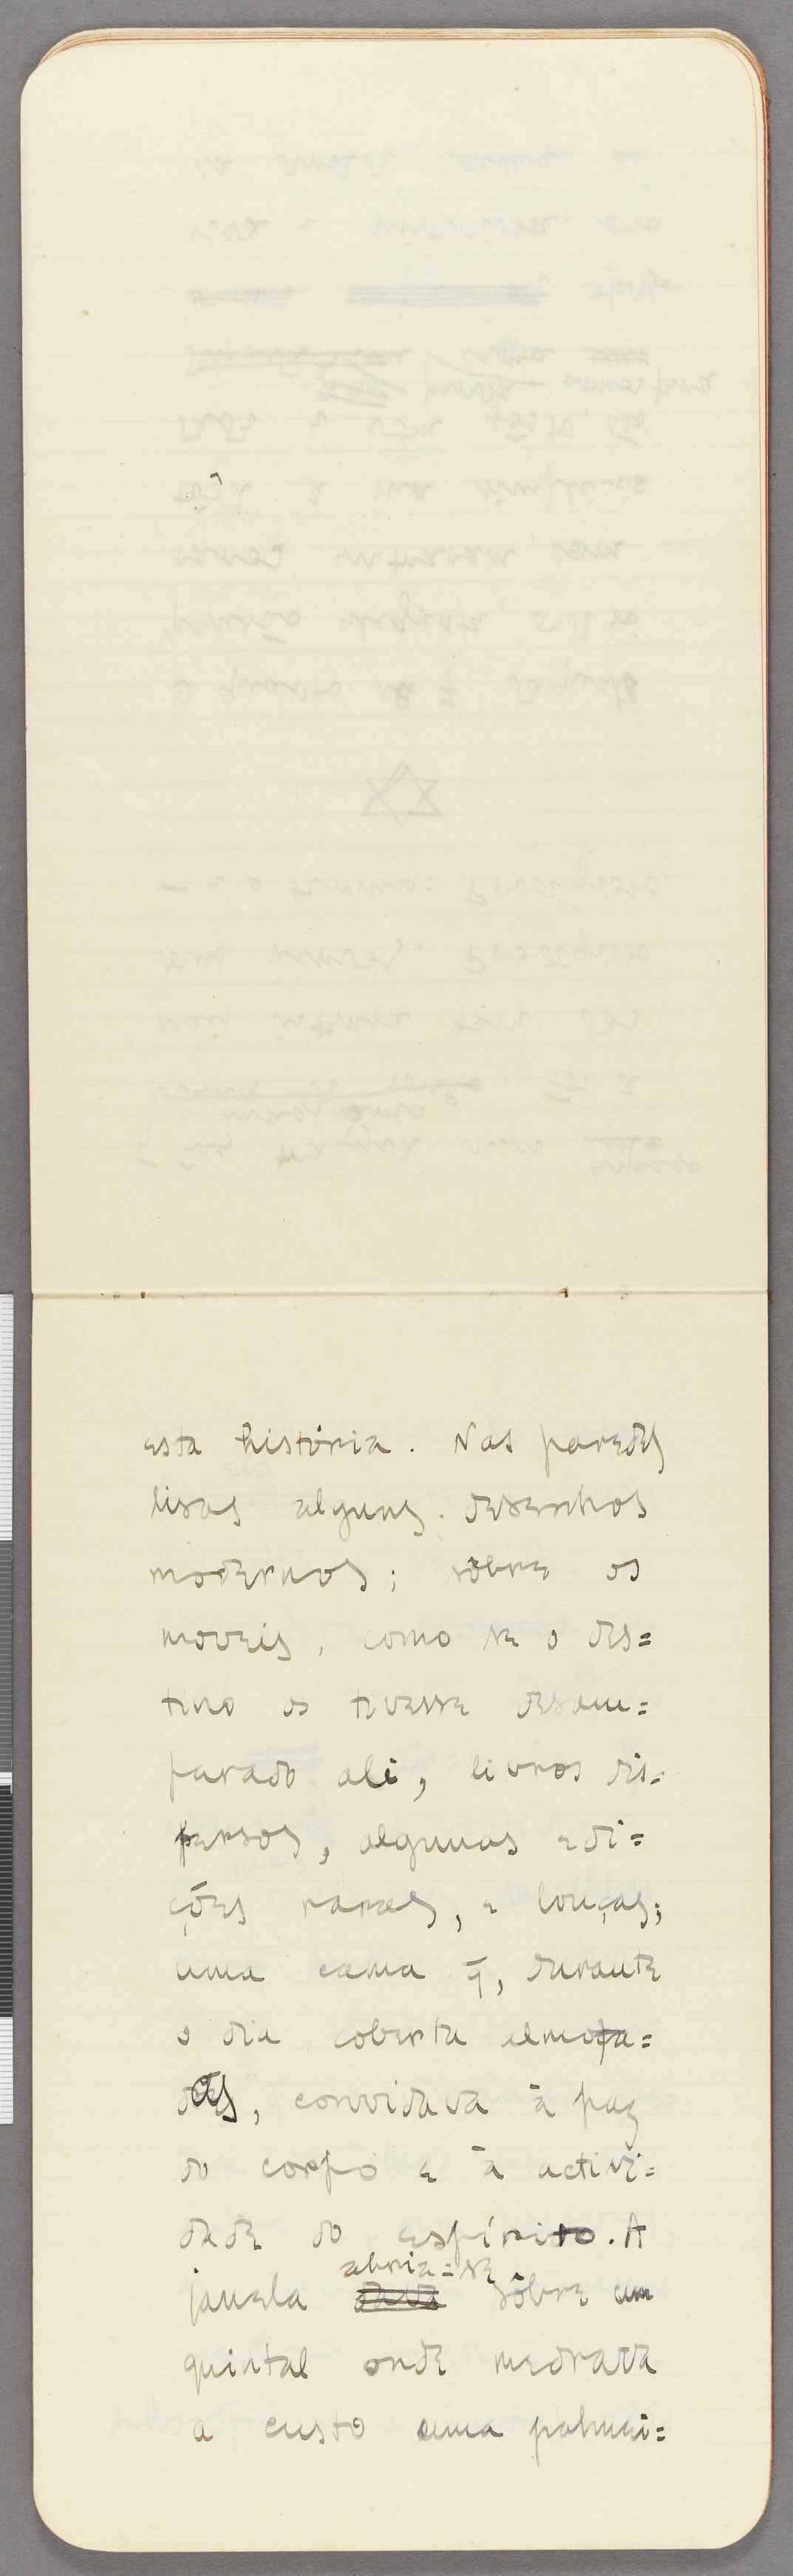 esta história. Nas paredes
lisas alguns desenhos
modernos; sôbre os
moveis, como se o des=
tino os tivesse desam=
parado ali, livros dis=
persos, algumas edi=
ções raras, e louças;
uma cama q̄, durante
o dia coberta almofa=
das, convidava à paz
do corpo e à activi=
dade do espírito. A
abria=se
janela dava sôbre um
quintal onde medrava
a custo uma palmei=